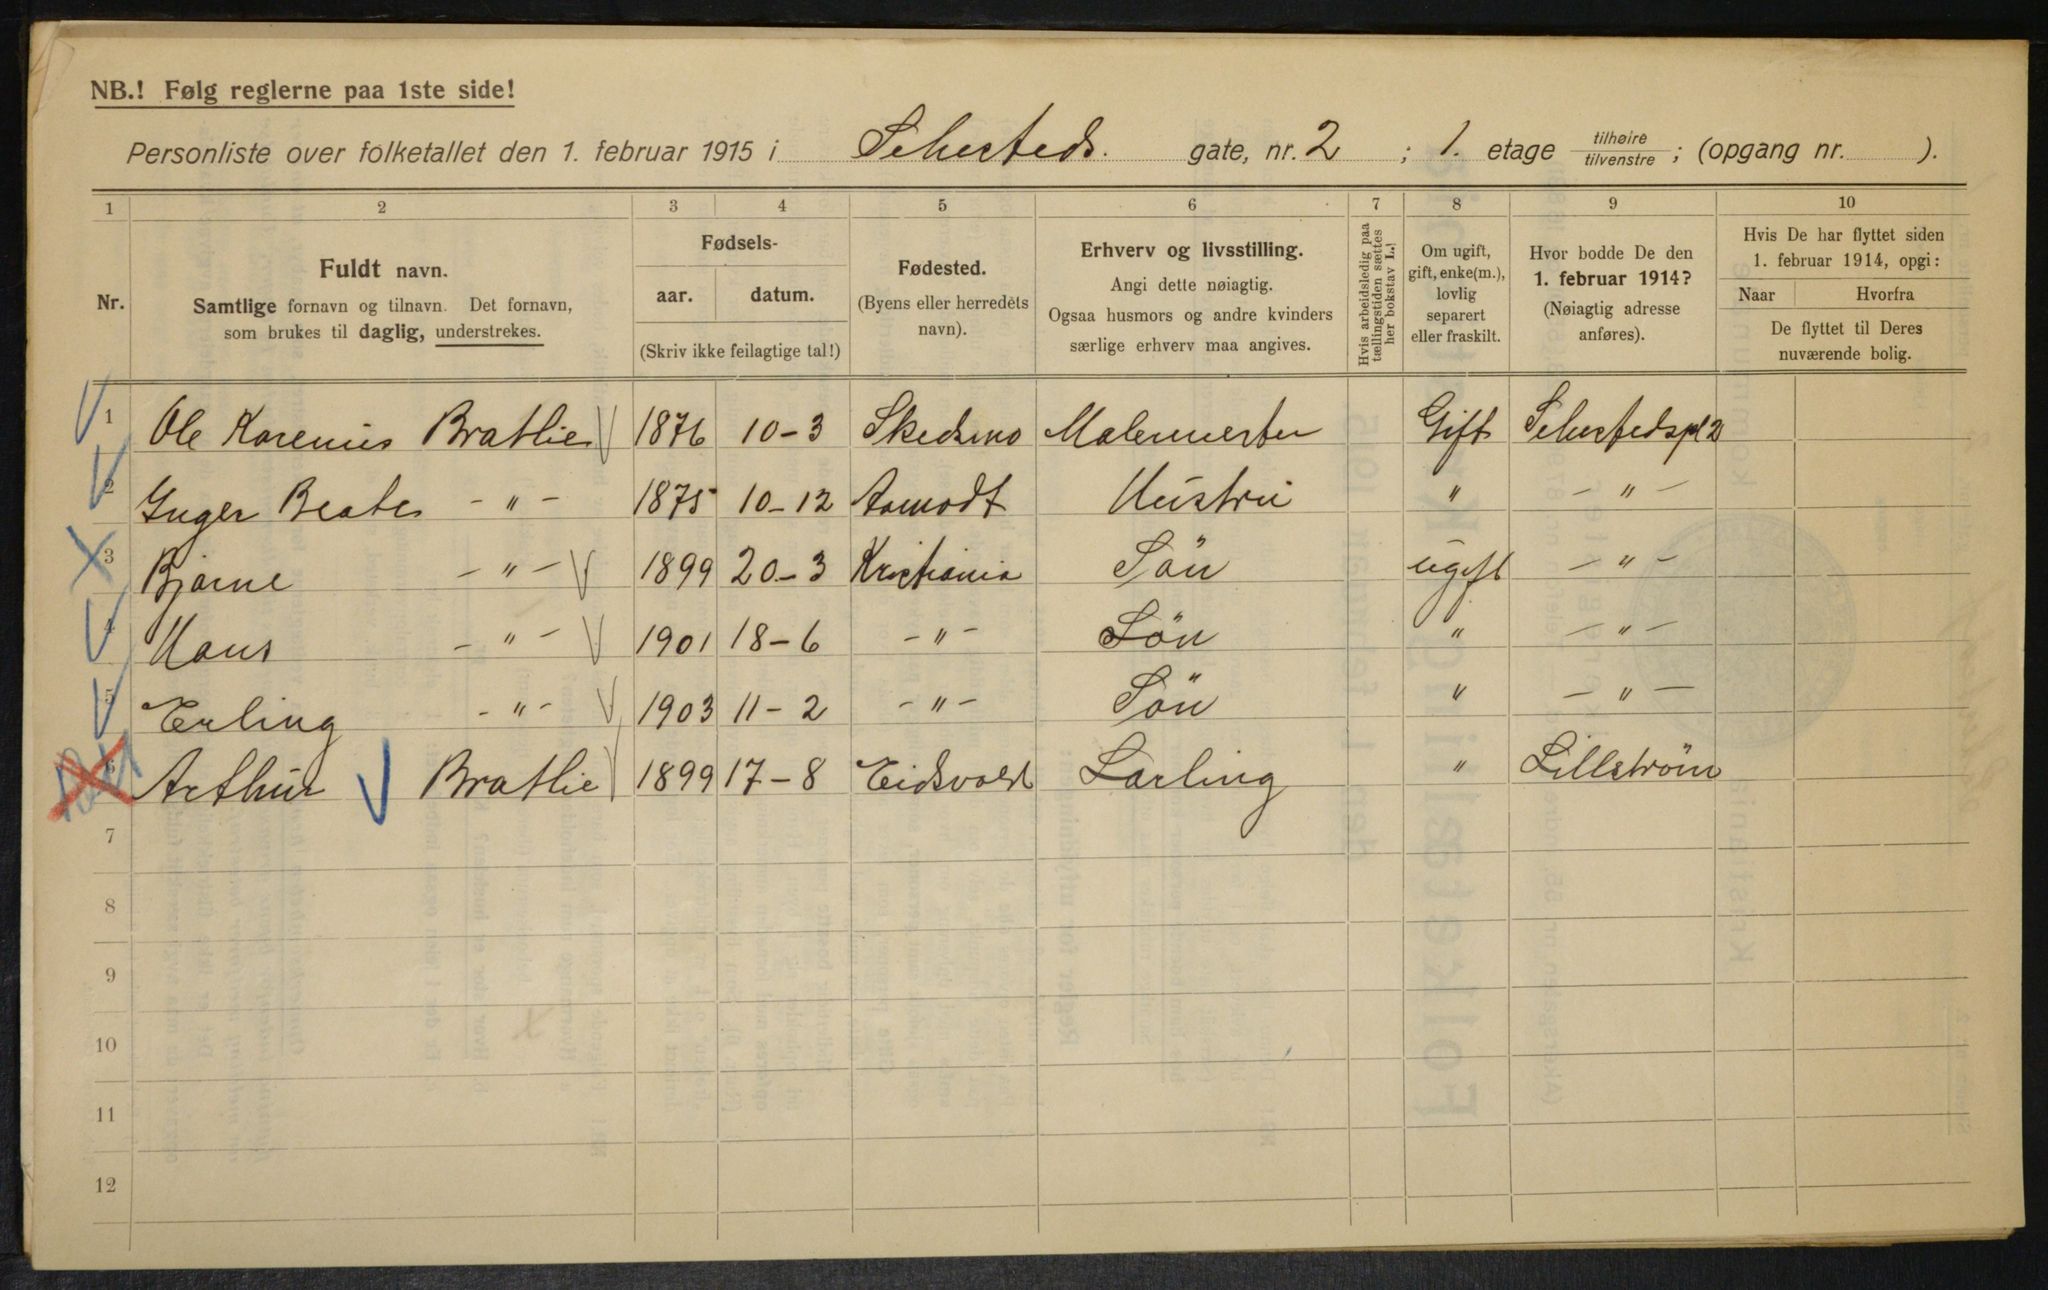 NB.! Følg reglerne paa 1ste side!
Personliste over folketallet den 1. februar 1915 i Sehesteds. gate, nr. 2 ; 1. etage tilhøire / tilvenstre ; (opgang nr. ).
1 2 3 4 5 6 7 8 9 10
Nr.
Fuldt navn.
Samtlige fornavn og tilnavn. Det fornavn,
som brukes til daglig, understrekes.
Fødsels-
aar. datum.
(Skriv ikke feilagtige tal!)
Fødested.
(Byens eller herredets
navn).
Erhverv og livsstilling.
Angi dette nøiagtig.
Ogsaa husmors og andre kvinders
særlige erhverv maa angives.
Hvis arbeidsledig paa
tællingstiden sættes
her bokstav L.!
Om ugift,
gift, enke(m.),
lovlig
separert
eller fraskilt.
Hvor bodde De den
1. februar 1914?
(Nøiagtig adresse
anføres).
Hvis De har flyttet siden
1. februar 1914, opgi:
Naar Hvorfra
De flyttet til Deres
nuværende bolig.
1 Ole Karenius Brathie 1876 10-3 Skedsmo Malermester Gift Sehestedspl 2
2 Inger Beate -"- 1875 10-12 Aamodt Hustru " -"-
3 Bjarne -"- 1899 20-3 Kristiania Sön ugift -"-
4 Hans -"- 1901 18-6 -"- Sön " -"-
5 Erling -"- 1903 11-2 -"- Sön " -"-
6 Arthur Brathie 1899 17-8 Eidsvold Lærling " Lillström
7
8
9
10
11
12